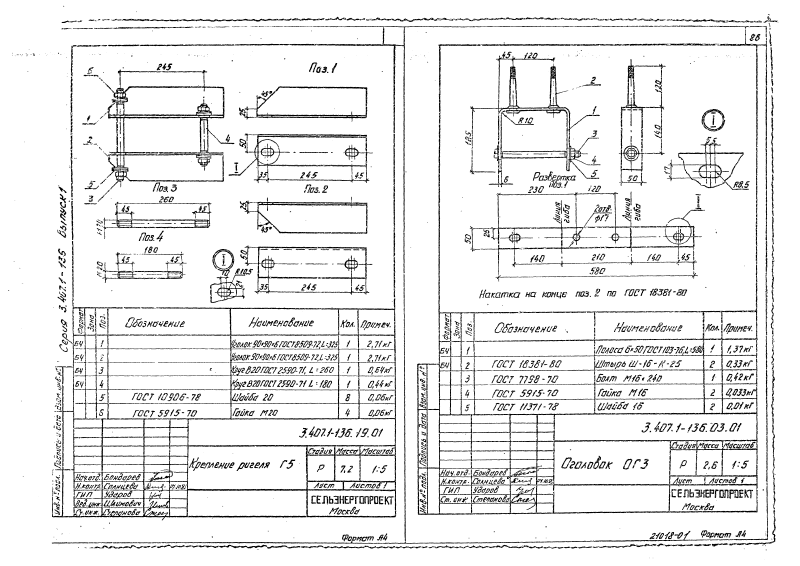 88
Серия 3.407.1-136 Выпуск 1
6
245
1
2
5
3
4
Поз. 1
45°
25
50
I
35
245
45
Поз. 2
25
45°
50
35
245
45
Поз. 3
260
45
45
Поз. 4
180
45
45
М20
I
R10.5
Формат
Зона
Поз.
Обозначение
Наименование
Кол.
Примеч.
БЧ 1 Уголок 90×90×6 ГОСТ 8509-72, L=325 1 2,71кг
БЧ 2 Уголок 90×90×6 ГОСТ 8509-72, L=325 1 2,71кг
БЧ 3 Круг В20 ГОСТ 2590-71, L=260 1 0,64кг
БЧ 4 Круг В20 ГОСТ 2590-71 L=180 1 0,44кг
5 ГОСТ 10906-78 Шайба 20 8 0,06кг
6 ГОСТ 5915-70 Гайка М20 4 0,06кг
3.407.1-136.19.01
Крепление ригеля Г5
Стадия Масса Масштаб
Р 7,2 1:5
Лист Листов 1
СЕЛЬЭНЕРГОПРОЕКТ
Москва
Нач.отд. Бондарев
Н.контр. Солнцева
ГИП Ударов
Вед.инж. Шилкович
Ст.инж. Степанова
Инв.№ подл. Подпись и дата Взам.инв.№
Формат А4
45
120
2
1
3
4
5
R10
185
6
120
140
50
I
5,5
17
R8.5
Развертка
поз. 1
230
120
Линия гиба
2 отв. φ17
Линия гиба
50
25
140
210
140
45
580
Накатка на конце поз. 2 по ГОСТ 18381-80
Формат
Зона
Поз.
Обозначение
Наименование
Кол.
Примеч.
БЧ 1 Полоса 6×50 ГОСТ 103-76, L=580 1 1,37кг
БЧ 2 ГОСТ 18381-80 Штырь Ш-16-К-25 2 0,33кг
3 ГОСТ 7798-70 Болт М16×240 1 0,42кг
4 ГОСТ 5915-70 Гайка М16 2 0,033кг
5 ГОСТ 11371-78 Шайба 16 2 0,01кг
3.407.1-136.03.01
Оголовок ОГ3
Стадия Масса Масштаб
Р 2,6 1:5
Лист Листов 1
СЕЛЬЭНЕРГОПРОЕКТ
Москва
Нач.отд. Бондарев
Н.контр. Солнцева
ГИП Ударов
Ст.инж. Степанова
Инв.№ подл. Подпись и дата Взам.инв.№
21018-01
Формат А4